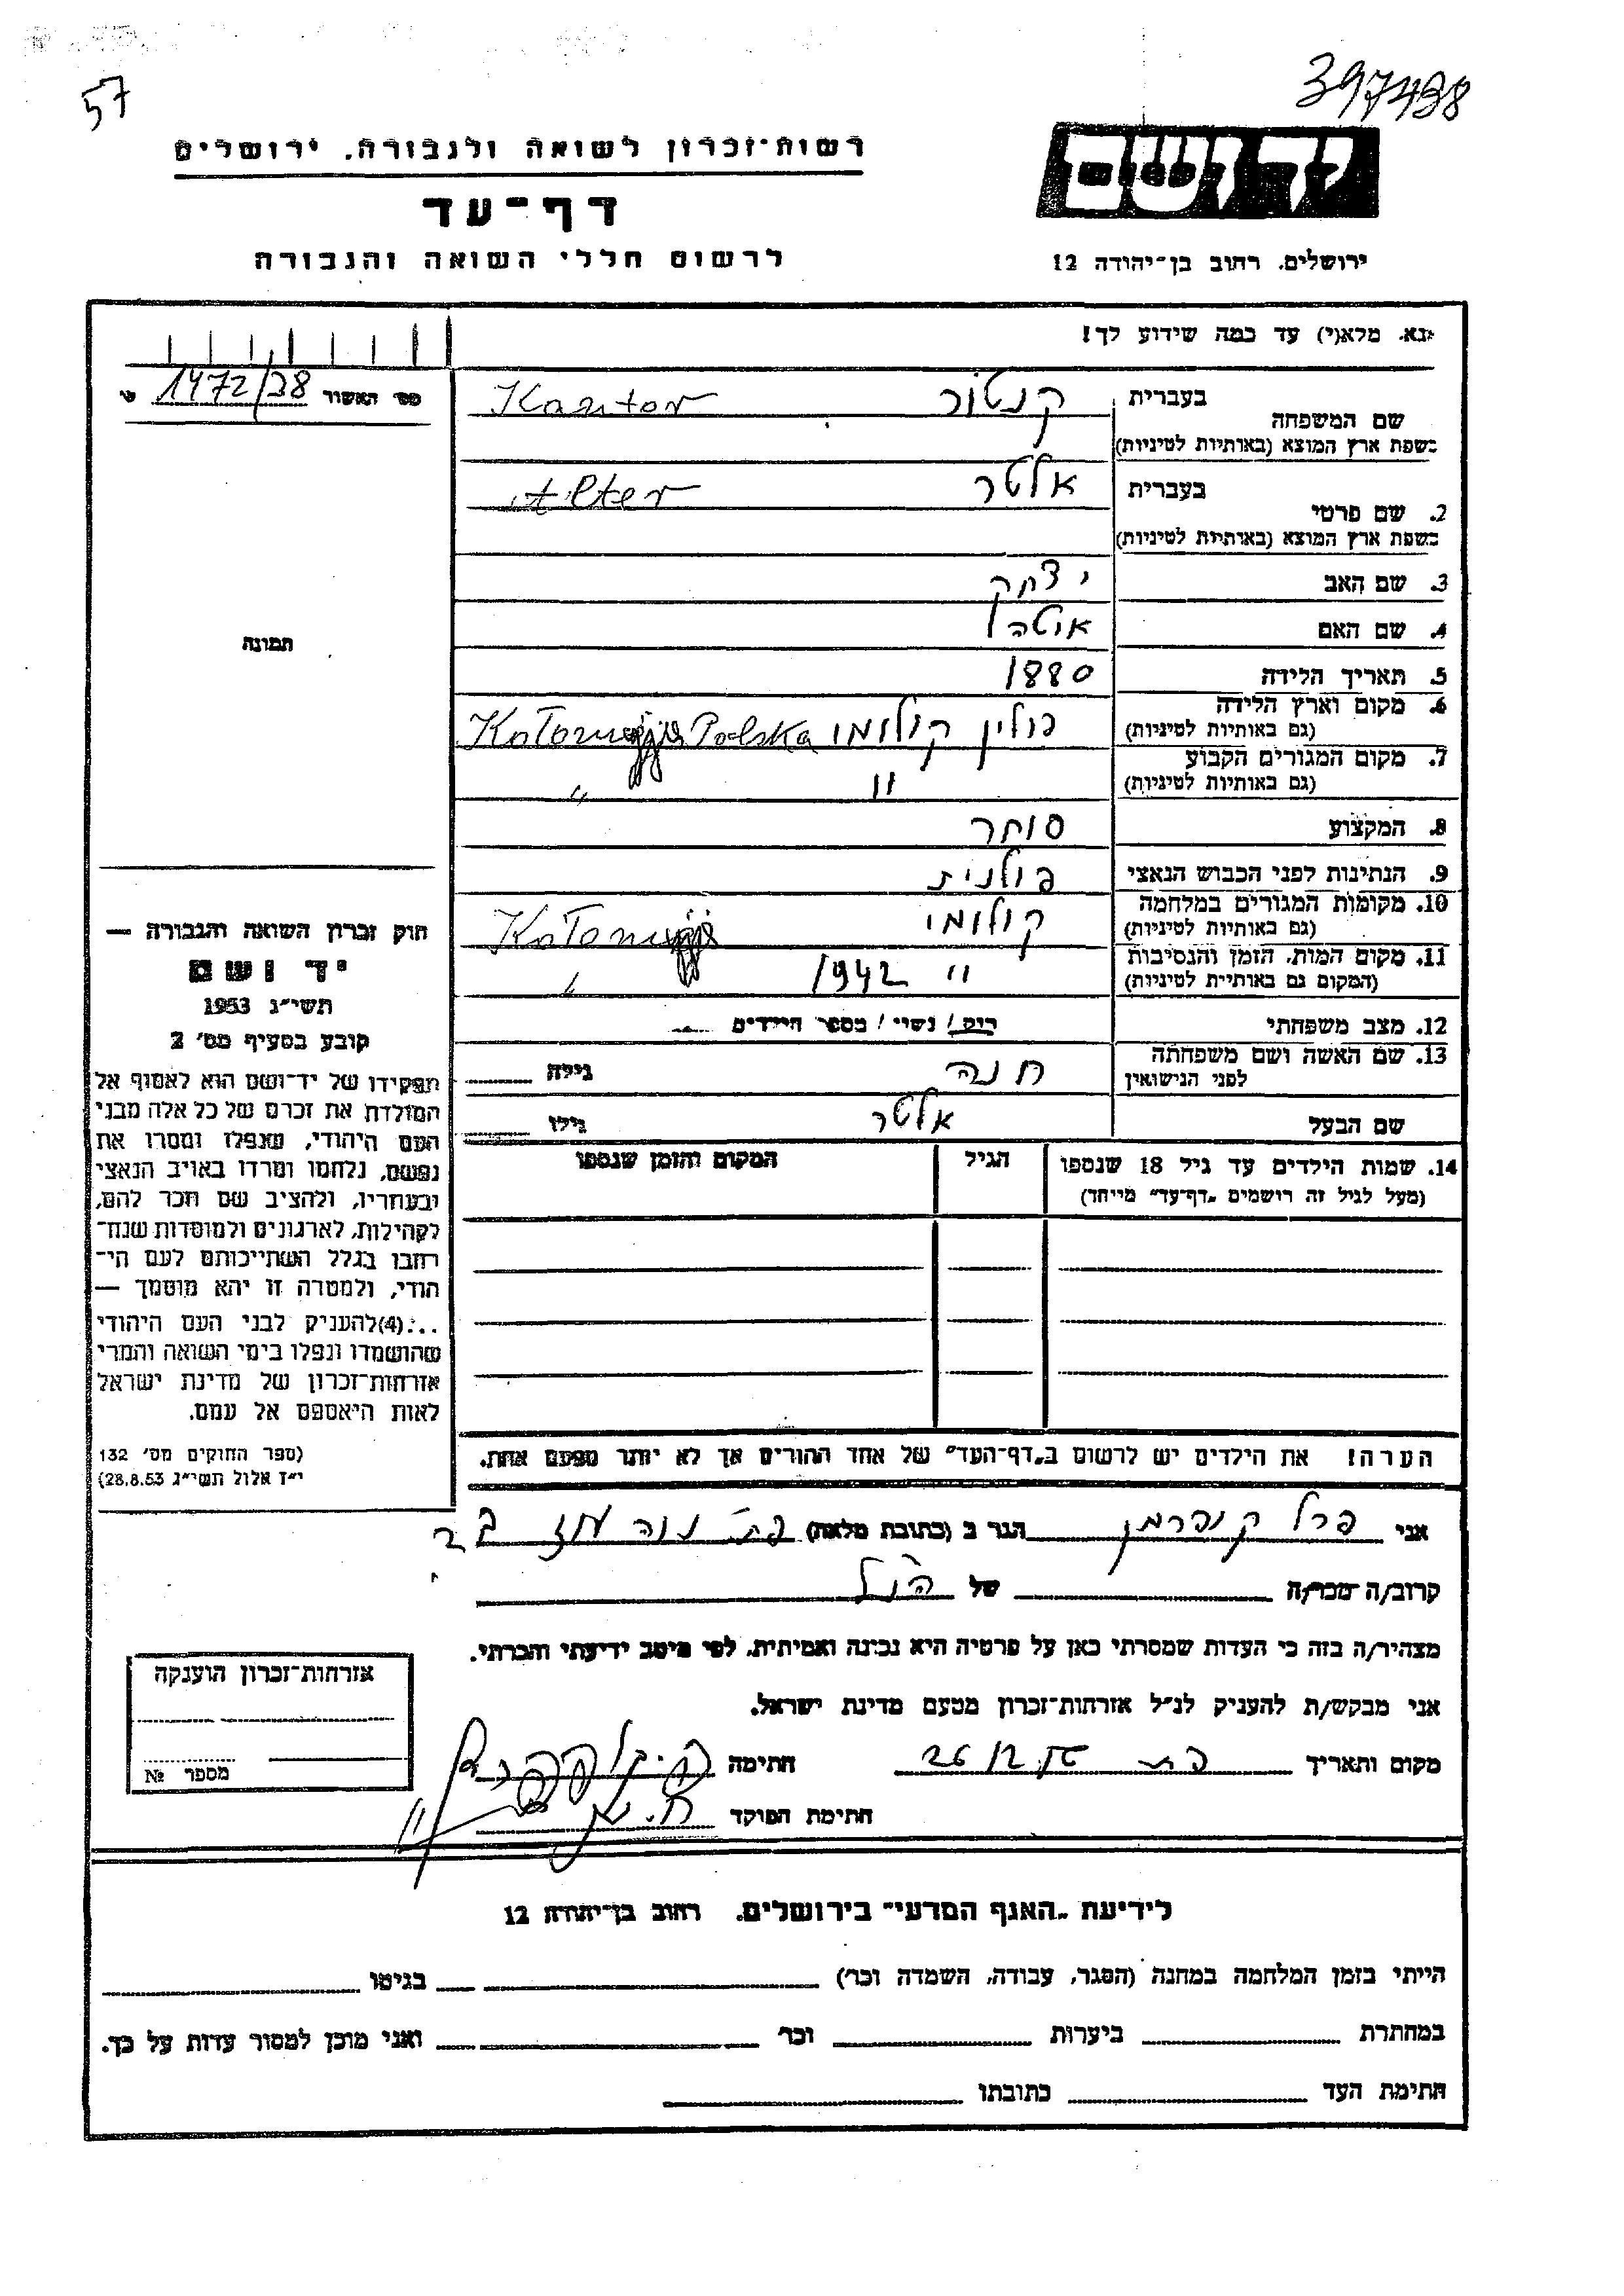 57
397438
רשות-זכרון לשואה ולגבורה, ירושלים
דף-עד
לרשום חללי השואה והגבורה
יד ושם
ירושלים, רחוב בן-יהודה 12
נא, מלא(י) עד כמה שידוע לך!
מס' האשור 1472/38
בעברית קנטור Kantor
שם המשפחה
בשפת ארץ המוצא (באותיות לטיניות)
בעברית אלטר Alter
2. שם פרטי
בשפת ארץ המוצא (באותיות לטיניות)
3. שם האב יצחק
4. שם האם
תמונה
5. תאריך הלידה 1880
6. מקום וארץ הלידה פולין קולומי Polska
(גם באותיות לטיניות)
7. מקום המגורים הקבוע " "
(גם באותיות לטיניות)
8. המקצוע סוחר
9. הנתינות לפני הכבוש הנאצי פולנית
10. מקומות המגורים במלחמה קולומי
(גם באותיות לטיניות)
11. מקום המות, הזמן והנסיבות " 1942 "
(המקום גם באותיות לטיניות)
12. מצב משפחתי רוק / נשוי / מספר הילדים
13. שם האשה ושם משפחתה חנה גילה
לפני הנישואין
שם הבעל אלטר גילו
חוק זכרון השואה והגבורה —
יד ושם
תשי"ג 1953
קובע בסעיף מס' 2
תפקידו של יד-ושם הוא לאסוף אל
המולדת את זכרם של כל אלה מבני
העם היהודי, שנפלו ומסרו את
נפשם, נלחמו ומרדו באויב הנאצי
ובעוזריו, ולהציב שם וזכר להם,
לקהילות, לארגונים ולמוסדות שנח-
רבו בגלל השתייכותם לעם הי-
הודי, ולמטרה זו יהא מוסמך —
...(4)להעניק לבני העם היהודי
שהושמדו ונפלו בימי השואה והמרי
אזרחות-זכרון של מדינת ישראל
לאות היאספם אל עמם.
(ספר החוקים מס' 132
י"ז אלול תשי"ג 28.8.53)
14. שמות הילדים עד גיל 18 שנספו
(מעל לגיל זה רושמים „דף-עד" מייחד)
הגיל
המקום והזמן שנספו
הערה! את הילדים יש לרשום ב„דף-העד" של אחד ההורים אך לא יותר מפעם אחת.
אני פרל קופרמן הגר ב (כתובת מלאה) פת נוה עוז
קרוב/ה מכר/ה של הנ"ל
מצהיר/ה בזה כי העדות שמסרתי כאן על פרטיה היא נכונה ואמיתית, לפי מיטב ידיעתי והכרתי.
אני מבקש/ת להעניק לנ"ל אזרחות-זכרון מטעם מדינת ישראל.
מקום ותאריך פת 26 12 חתימה
חתימת הפוקד
אזרחות-זכרון הוענקה
מספר №
לידיעת „האגף המדעי" בירושלים, רחוב בן-יהודה 12
הייתי בזמן המלחמה במחנה (הסגר, עבודה, השמדה וכו') בגיטו
במחתרת ביערות וכו' ואני מוכן למסור עדות על כך.
חתימת העד כתובתו